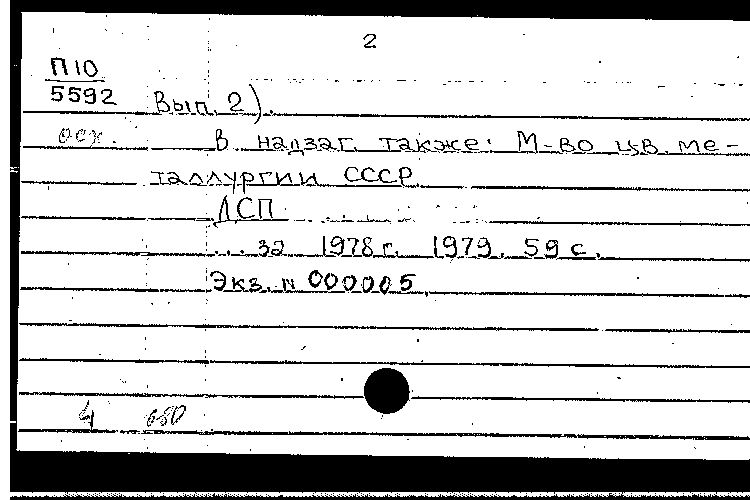 2
П10
5592
Вып. 2).
осх.
В надзаг. также: М-во цв. ме-
таллургии СССР.
ДСП
... за 1978 г. 1979. 59 с.
Экз. № 000005.
4